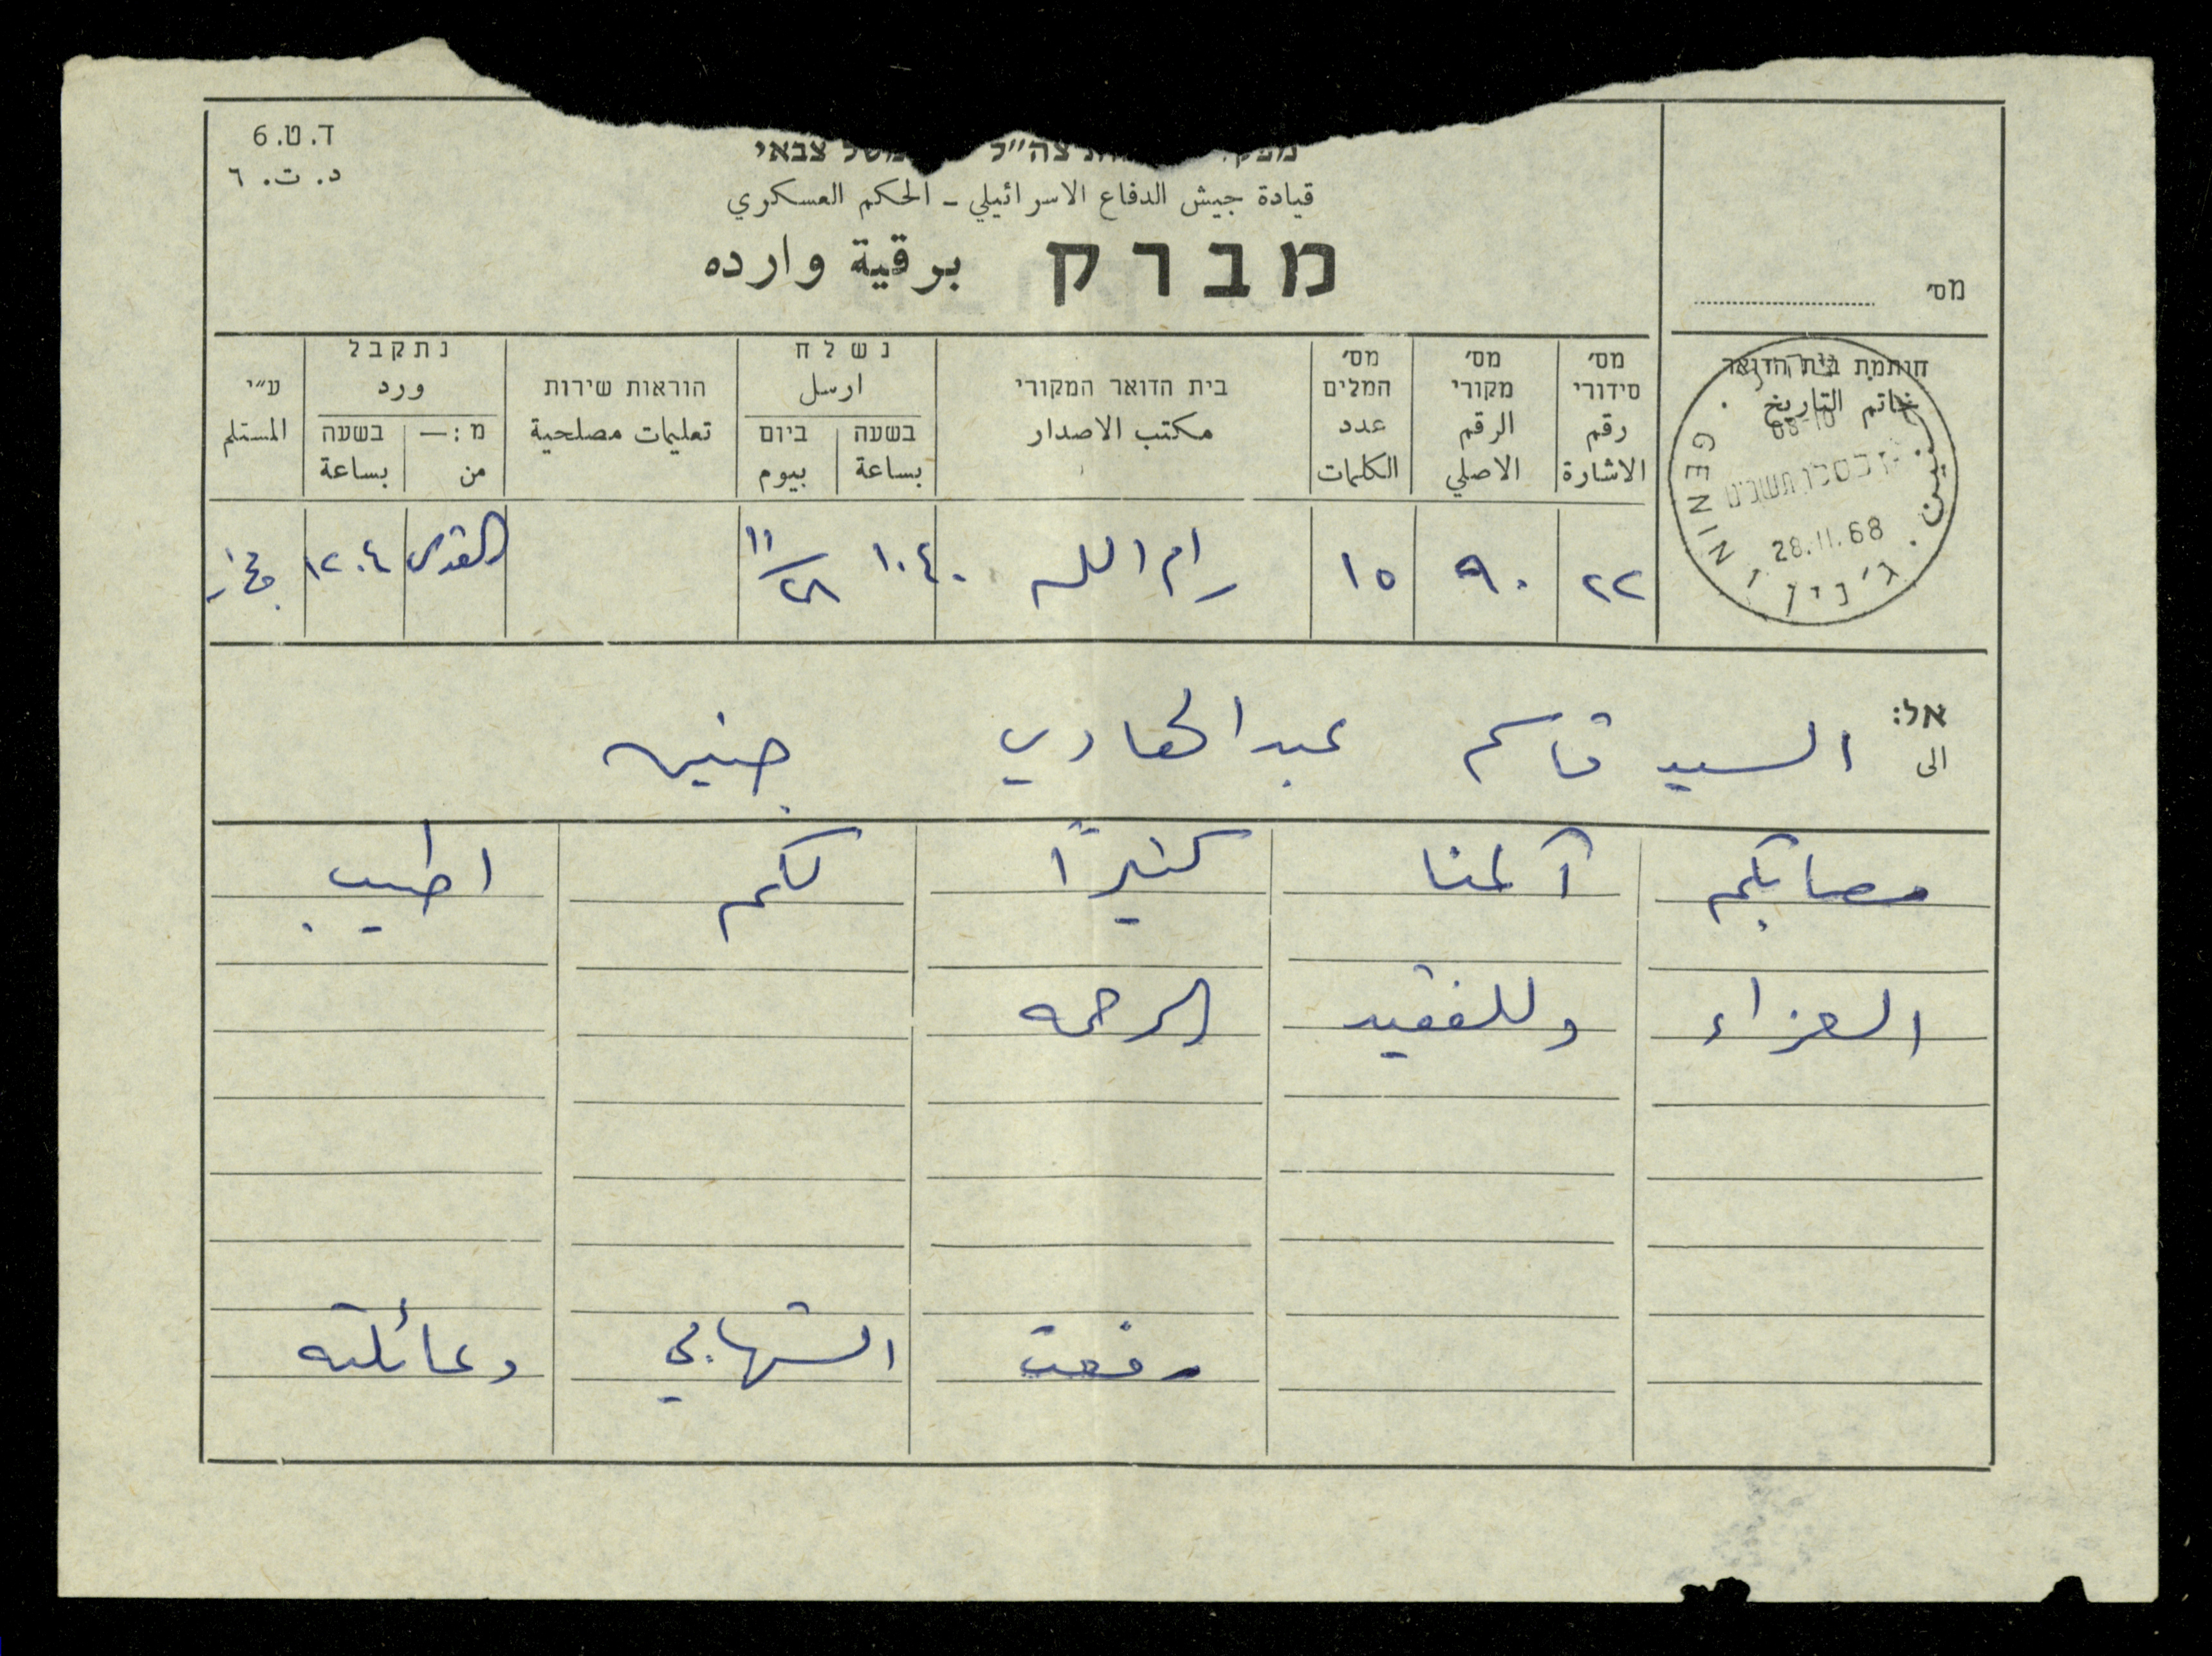 ד.ט.6
د.ت.٦
צה״ל צבאי
قيادة جيش الدفاع الاسرائيلي - الحكم العسكري
מברק برقية وارده
מס׳
חותמת בית הדואר
خاتم التاريخ
GENIN جنين ג׳נין
08-10
28.11.68
מס׳ סידורי رقم الاشارة
מס׳ מקורי الرقم الاصلي
מס׳ המלים عدد الكلمات
בית הדואר המקורי مكتب الاصدار
נשלח ارسل
בשעה بساعة
ביום بيوم
הוראות שירות تعليمات مصلحية
נתקבל ورد
מ:— من
בשעה بساعة
ע״י المستلم
٢٢ ٩٠ ١٥ رام الله ١٠٤٠ ٢٨/١١ القدس ١٢٠٤
אל:
الى السيد قاسم عبد الهادي جنين
مصابكم آلمنا كثيراً لكم اطيب
العزاء وللفقيد الرحمه
رفعت الشهابي وعائلته